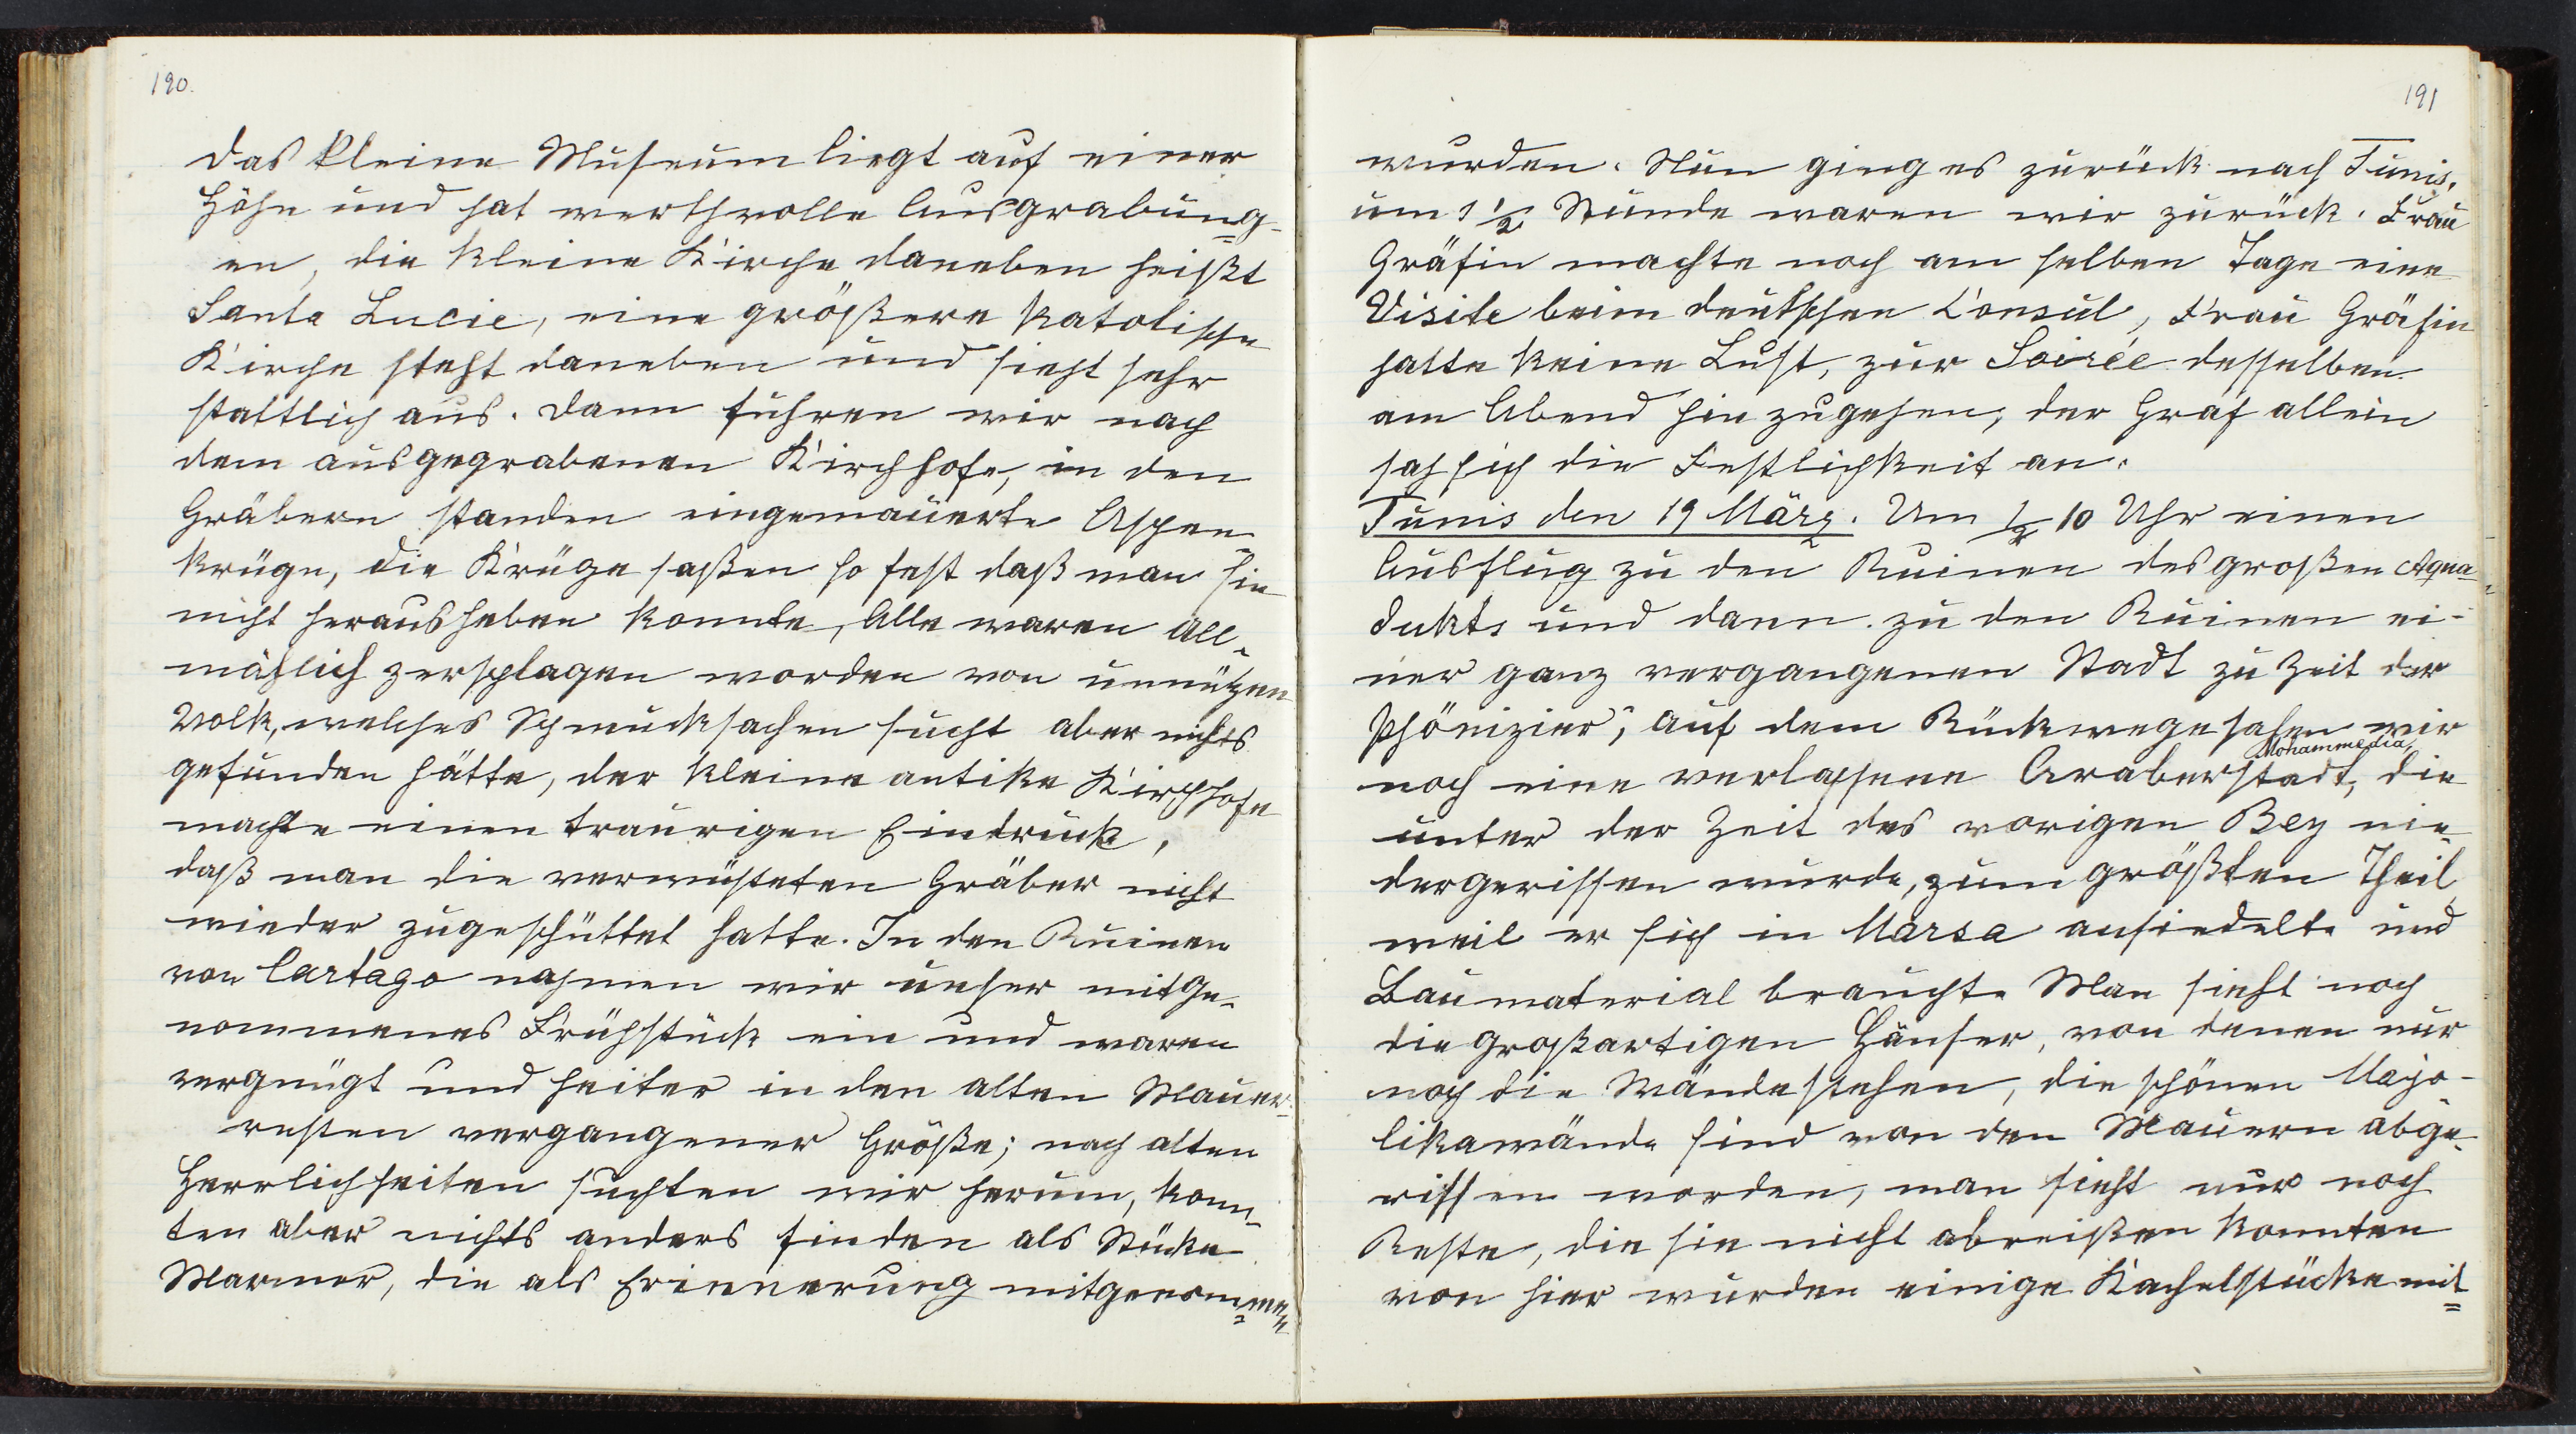 190.
das kleine Museum liegt auf einer
Höhe und hat werthvolle Ausgrabung-
en, die kleine Kirche daneben heißt
Santa Lucie, eine größere katolische
Kirche steht daneben und sieht sehr
stattlich aus. Dann fuhren wir nach
dem ausgegrabenen Kirchhofe, in den
Gräbern standen eingemauerte Aschen-
krüge, die Krüge saßen so fest daß man sie
nicht herausheben konnte, Alle waren all-
mählich zerschlagen worden von unnützen
Volk, welches Schmucksachen sucht aber nichts
gefunden hätte, der kleine antike Kirchhofe
machte einen traurigen Eindruck,
daß man die verwüsteten Gräber nicht
wieder zugeschüttet hatte. In den Ruinen
von Cartago nahmen wir unser mitge-
nommenes Frühstück ein und waren
vergnügt und heiter in den alten Mauer-
resten vergangener Größe; nach alten
Herrlichheiten suchten wir herum, konn-
ten aber nichts anders finden als Stücke
Marmor, die als Erinnerung mitgenommen
191
wurden. Nun ging es zurück nach Tunis.
um 1 1/2 Stunde waren wir zurück. Frau
Gräfin machte noch am selben Tage eine
Visite beim deutschen Consul, Frau Gräfin
hatte keine Lust, zur Soirée desselben
am Abend hin zugehen, der Graf allein
sah sich die Festlichkeit an.
Tunis den 19 März. Um 1/2 10 Uhr einen
Ausflug zu den Ruinen des großen Aqua-
dukts und dann zu den Ruinen ei-
ner ganz vergangenen Stadt zu Zeit der
Phönizier; auf dem Rückwege sahen wir
Mohammedia,
noch eine verlassene Araberstadt, die
unter der Zeit des vorigen Bey nie-
dergerissen wurde, zum größten Theil,
weil er sich in Marsa ansiedelte und
Baumaterial brauchte Man sieht noch
die großartigen Häuser, von denen nur
noch die Wände stehen, die schönen Majo-
likawände sind von den Mauern abge-
rissen worden, man sieht nur noch
Reste, die sie nicht abreißen konnten
von hier wurden einige Kachelstücke mit-